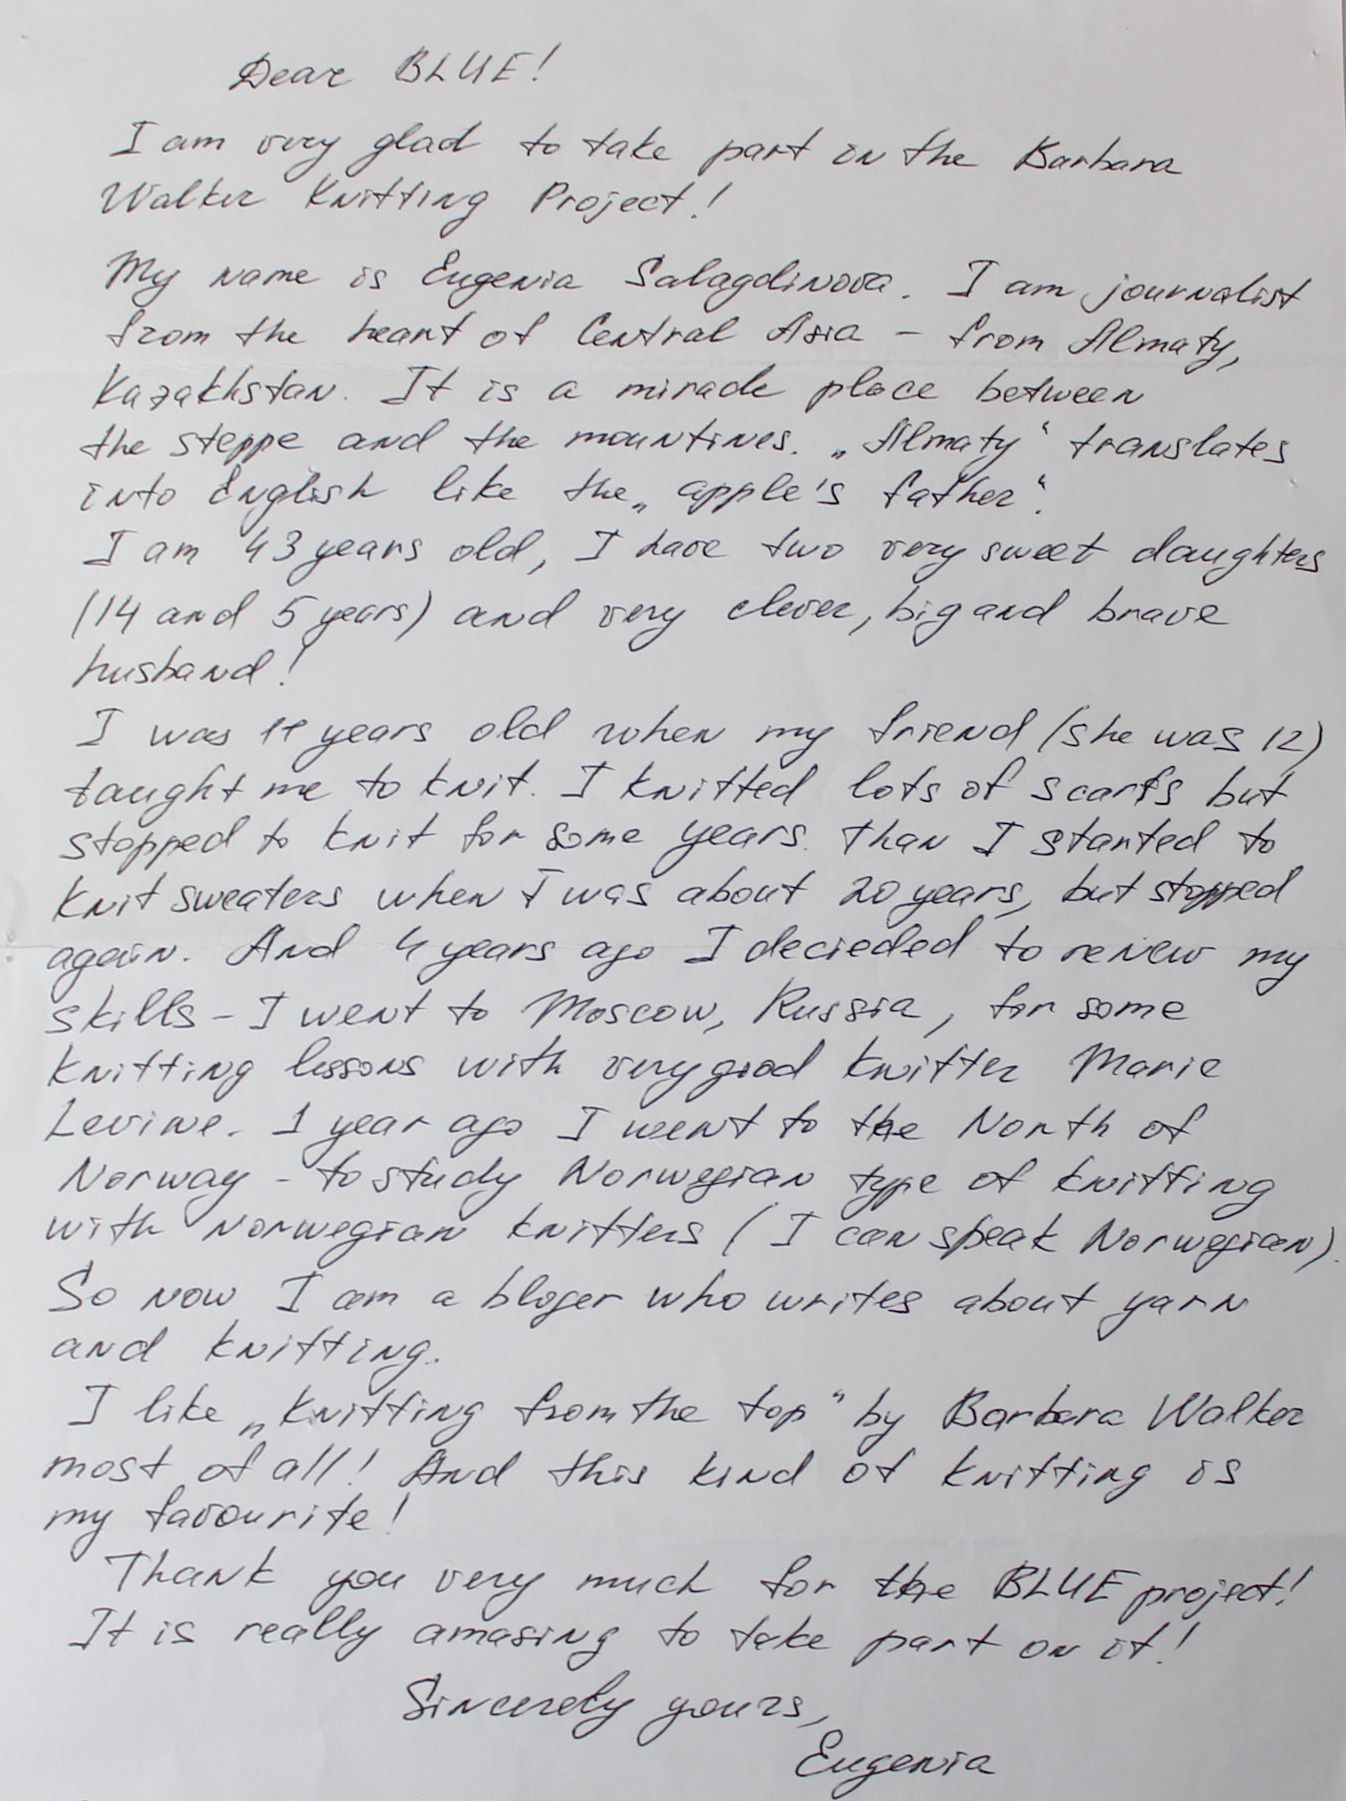 Dear BLUE!
I am very glad to take part in the Barbara
Walker Knitting Project!
My name is Eugenia Salagdinova. I am journalist
from the heart of Central Asia – from Almaty,
Kazakhstan. It is a miracle place between
the steppe and the mountines. „Almaty“ translates
into English like the „apple's father“.
I am 43 years old, I have two very sweet daughters
(14 and 5 years) and very clever, big and brave
husband!
I was 11 years old when my friend (she was 12)
taught me to knit. I knitted lots of scarfs but
stopped to knit for some years. Than I started to
knit sweaters when I was about 20 years, but stopped
again. And 4 years ago I decieded to renew my
skills – I went to Moscow, Russia, for some
knitting lessons with very good knitter Marie
Levine. 1 year ago I went to the North of
Norway – to study Norwegian type of knitting
with Norwegian knitters (I can speak Norwegian).
So now I am a bloger who writes about yarn
and knitting.
I like „Knitting from the top“ by Barbara Walker
most of all! And this kind of knitting is
my favourite!
Thank you very much for the BLUE project!
It is really amasing to take part on it!
Sincerely yours,
Eugenia